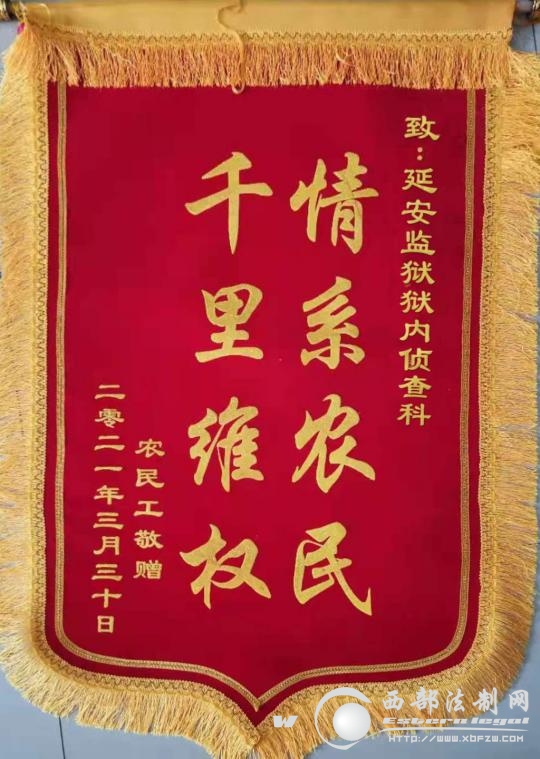 致：延安监狱狱内侦查科
情系农民
千里维权
农民工敬赠
二零二一年三月三十日
西部法制网
Western legal
HTTP://www.xbfzw.com